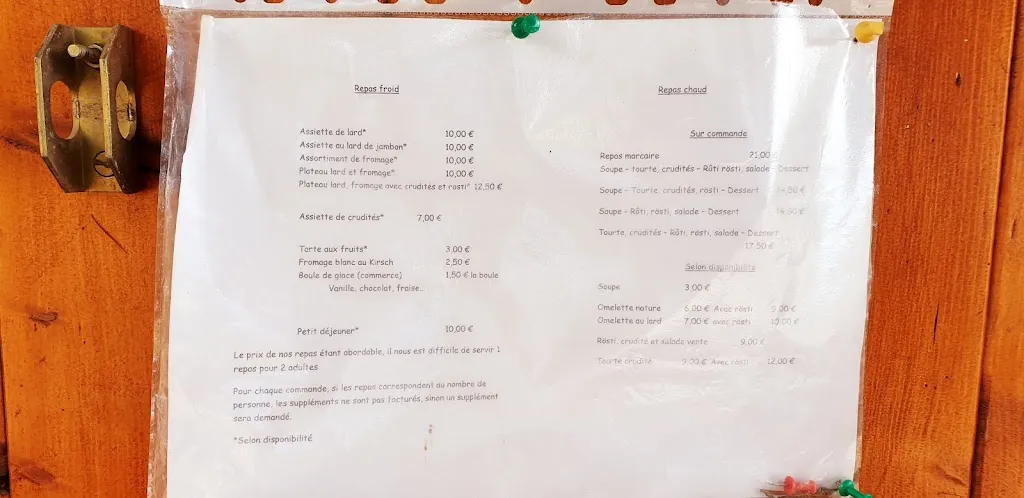 Repas froid
Assiette de lard* 10,00 €
Assiette au lard de jambon* 10,00 €
Assortiment de fromage* 10,00 €
Plateau lard et fromage* 10,00 €
Plateau lard, fromage avec crudités et rosti* 12,50 €
Assiette de crudités* 7,00 €
Tarte aux fruits* 3,00 €
Fromage blanc au Kirsch 2,50 €
Boule de glace (commerce) 1,50 € la boule
Vanille, chocolat, fraise...
Petit déjeuner* 10,00 €
Le prix de nos repas étant abordable, il nous est difficile de servir 1
repas pour 2 adultes
Pour chaque commande, si les repas correspondent au nombre de
personne, les suppléments ne sont pas facturés, sinon un supplément
sera demandé.
*Selon disponibilité
Repas chaud
Sur commande
Repas marcaire 21,00 €
Soupe - tourte, crudités - Rôti rösti, salade - Dessert
Soupe - Tourte, crudités, rösti - Dessert
Soupe - Rôti, rösti, salade - Dessert
Tourte, crudités - Rôti, rösti, salade - Dessert
17,50 €
Selon disponibilité
Soupe 3,00 €
Omelette nature 6,00 € Avec rösti 9,00 €
Omelette au lard 7,00 € avec rösti 10,00 €
Rösti, crudité et salade verte 9,00 €
Tourte crudité 9,00 € Avec rösti 12,00 €